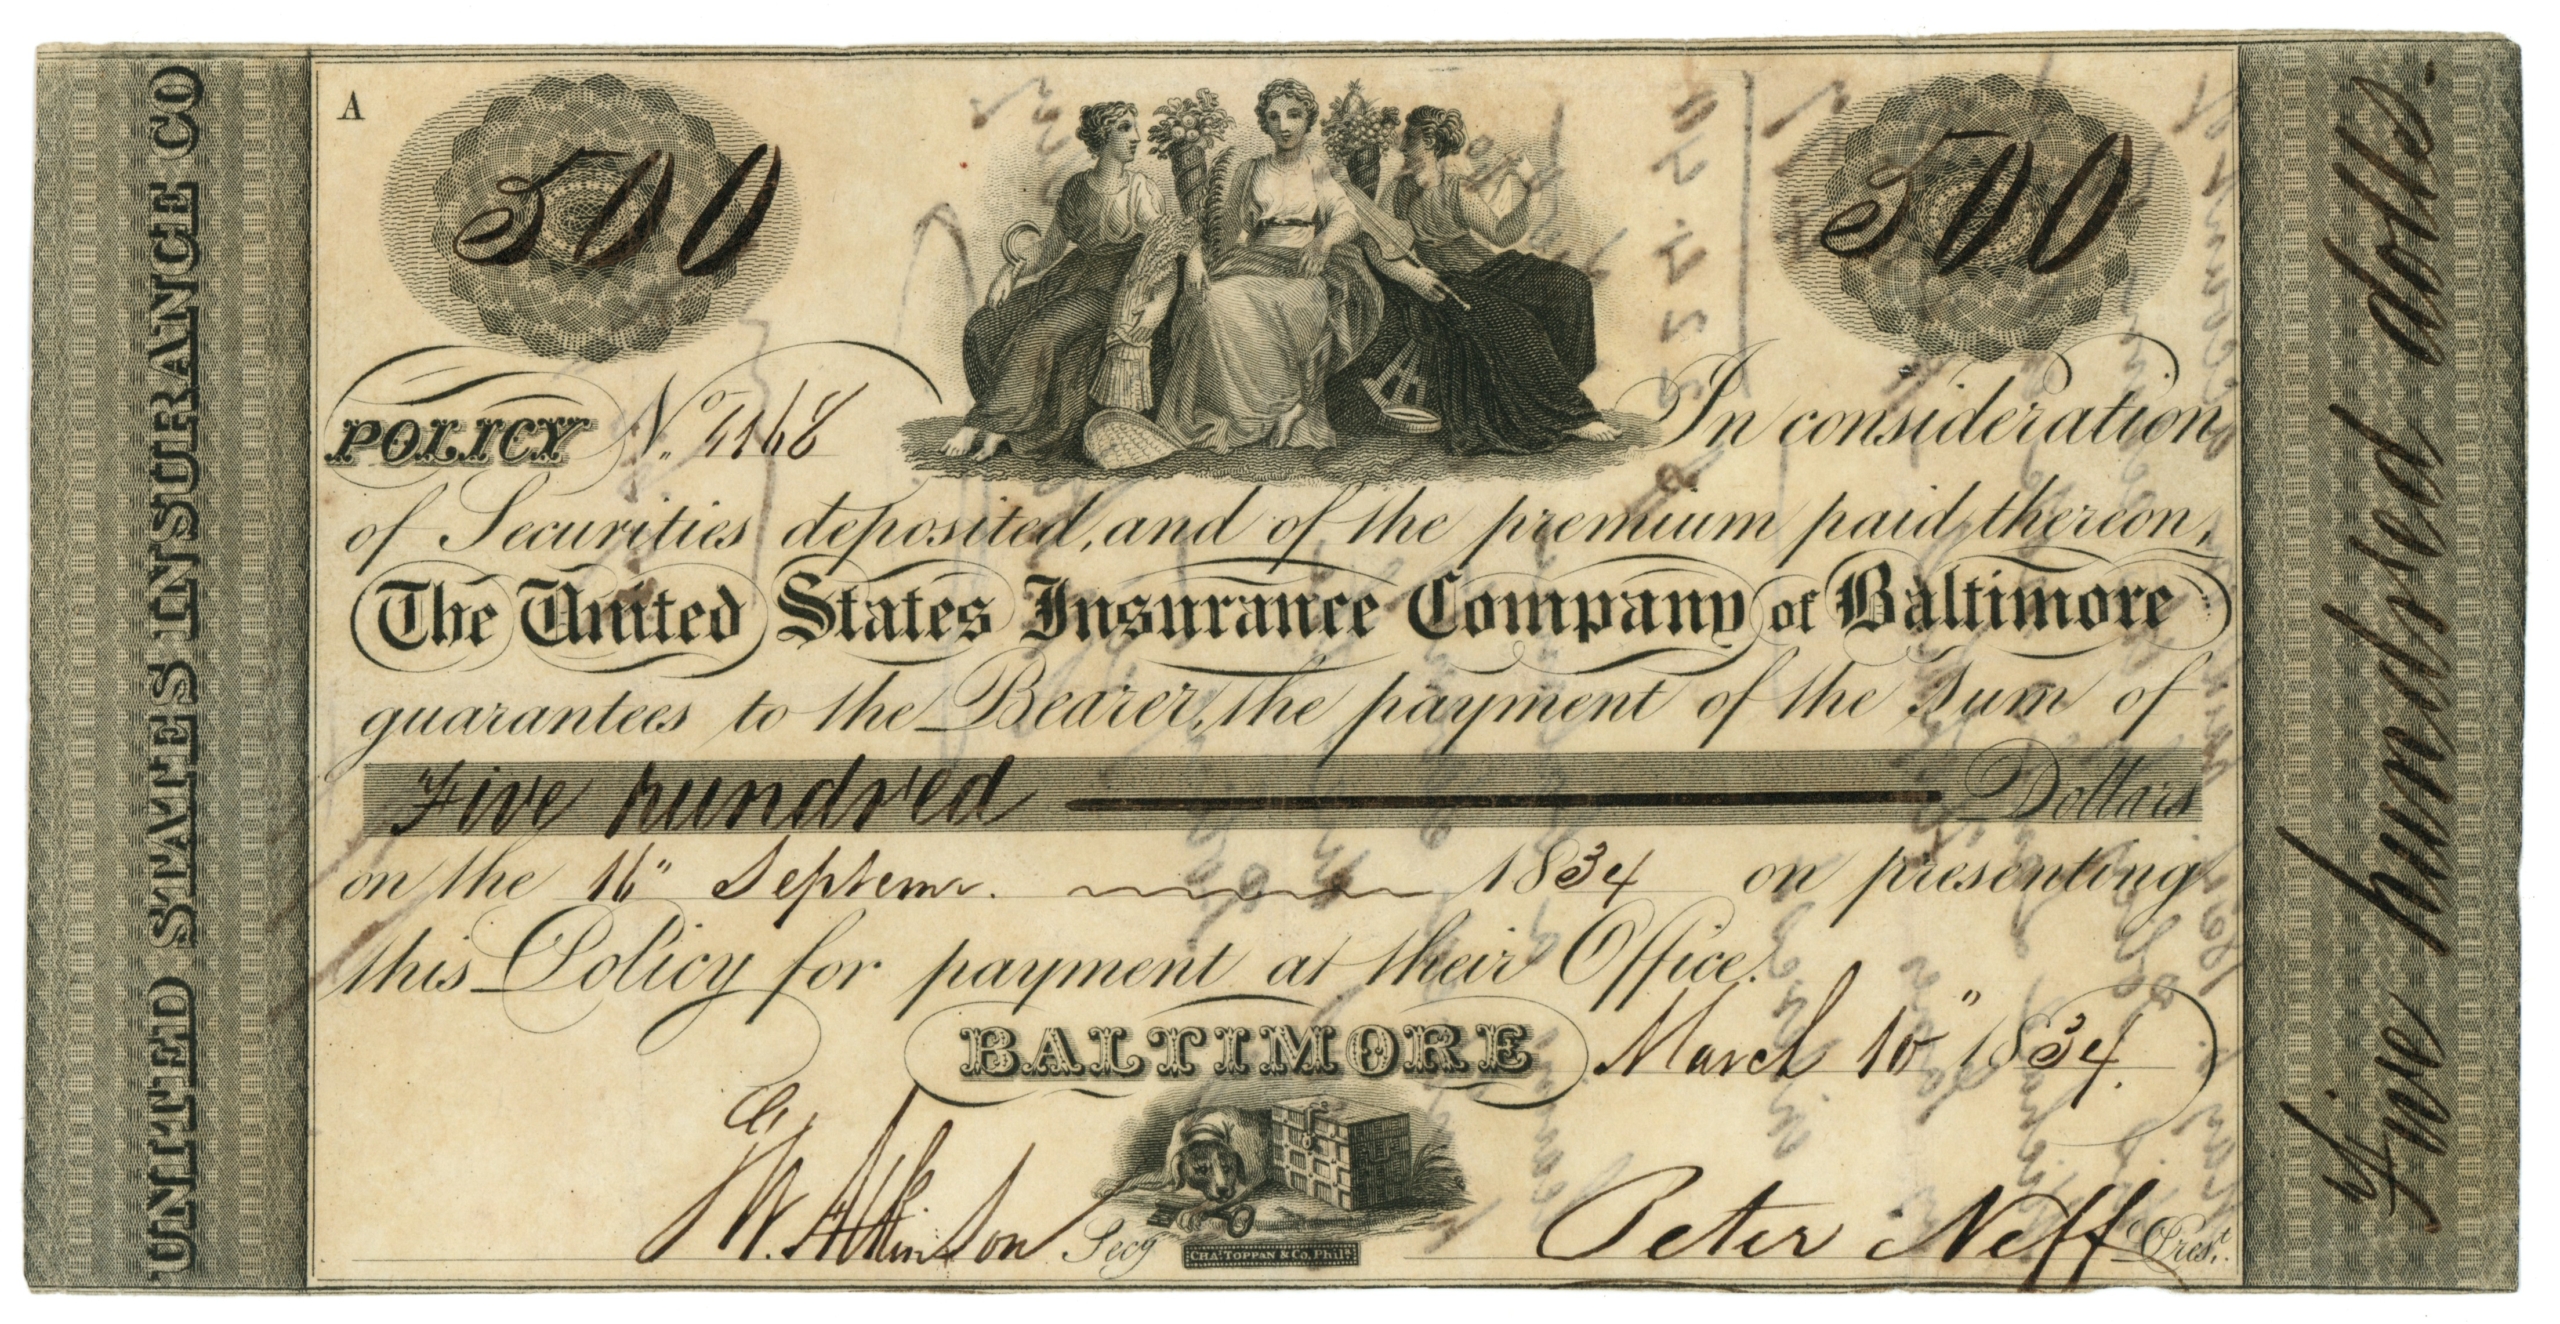 UNITED STATES INSURANCE CO
A
500
500
POLICY No. 4168
In consideration
of Securities deposited, and of the premium paid thereon,
The United States Insurance Company of Baltimore
guarantees to the Bearer, the payment of the Sum of
Five hundred Dollars
on the 16" Septemr. 1834 on presenting
this Policy for payment at their Office.
BALTIMORE March 10" 1834.
W. Atkinson Secy
Peter Neff Prest.
CHAs. TOPPAN & Co. Phila.
Five hundred dolls.